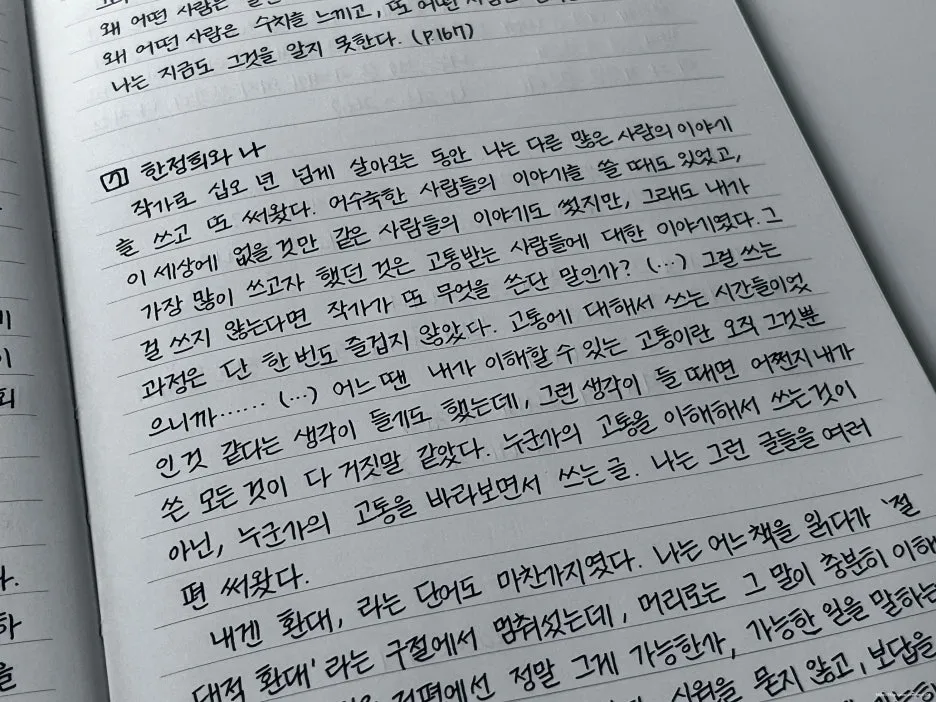 왜 어떤 사람은
왜 어떤 사람은 수치를 느끼고, 또 어떤 사람은
나는 지금도 그것을 알지 못한다. (p167)
한정희와 나
작가로 십오 년 넘게 살아오는 동안 나는 다른 많은 사람의 이야기
를 쓰고 또 써왔다. 어수룩한 사람들의 이야기를 쓸 때도 있었고,
이 세상에 없을 것만 같은 사람들의 이야기도 썼지만, 그래도 내가
가장 많이 쓰고자 했던 것은 고통받는 사람들에 대한 이야기였다. 그
걸 쓰지 않는다면 작가가 또 무엇을 쓴단 말인가? (…) 그걸 쓰는
과정은 단 한 번도 즐겁지 않았다. 고통에 대해서 쓰는 시간들이었
으니까…… (…) 어느 땐 내가 이해할 수 있는 고통이란 오직 그것뿐
인 것 같다는 생각이 들기도 했는데, 그런 생각이 들 때면 어쩐지 내가
쓴 모든 것이 다 거짓말 같았다. 누군가의 고통을 이해해서 쓰는 것이
아닌, 누군가의 고통을 바라보면서 쓰는 글. 나는 그런 글들을 여러
편 써왔다.
내겐 환대, 라는 단어도 마찬가지였다. 나는 어느 책을 읽다가 '절
대적 환대'라는 구절에서 멈춰섰는데, 머리로는 그 말이 충분히 이해
편에선 정말 그게 가능한가, 가능한 일을 말하는
신원을 묻지 않고, 보답을